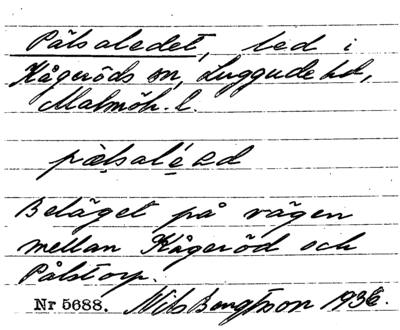 Pålsaledet, led i
Kågeröds sn, Luggude hd,
Malmöh. l.
Beläget på vägen
mellan Kågeröd och
Pålstorp.
Nr 5688. Nils Bengtson 1936.